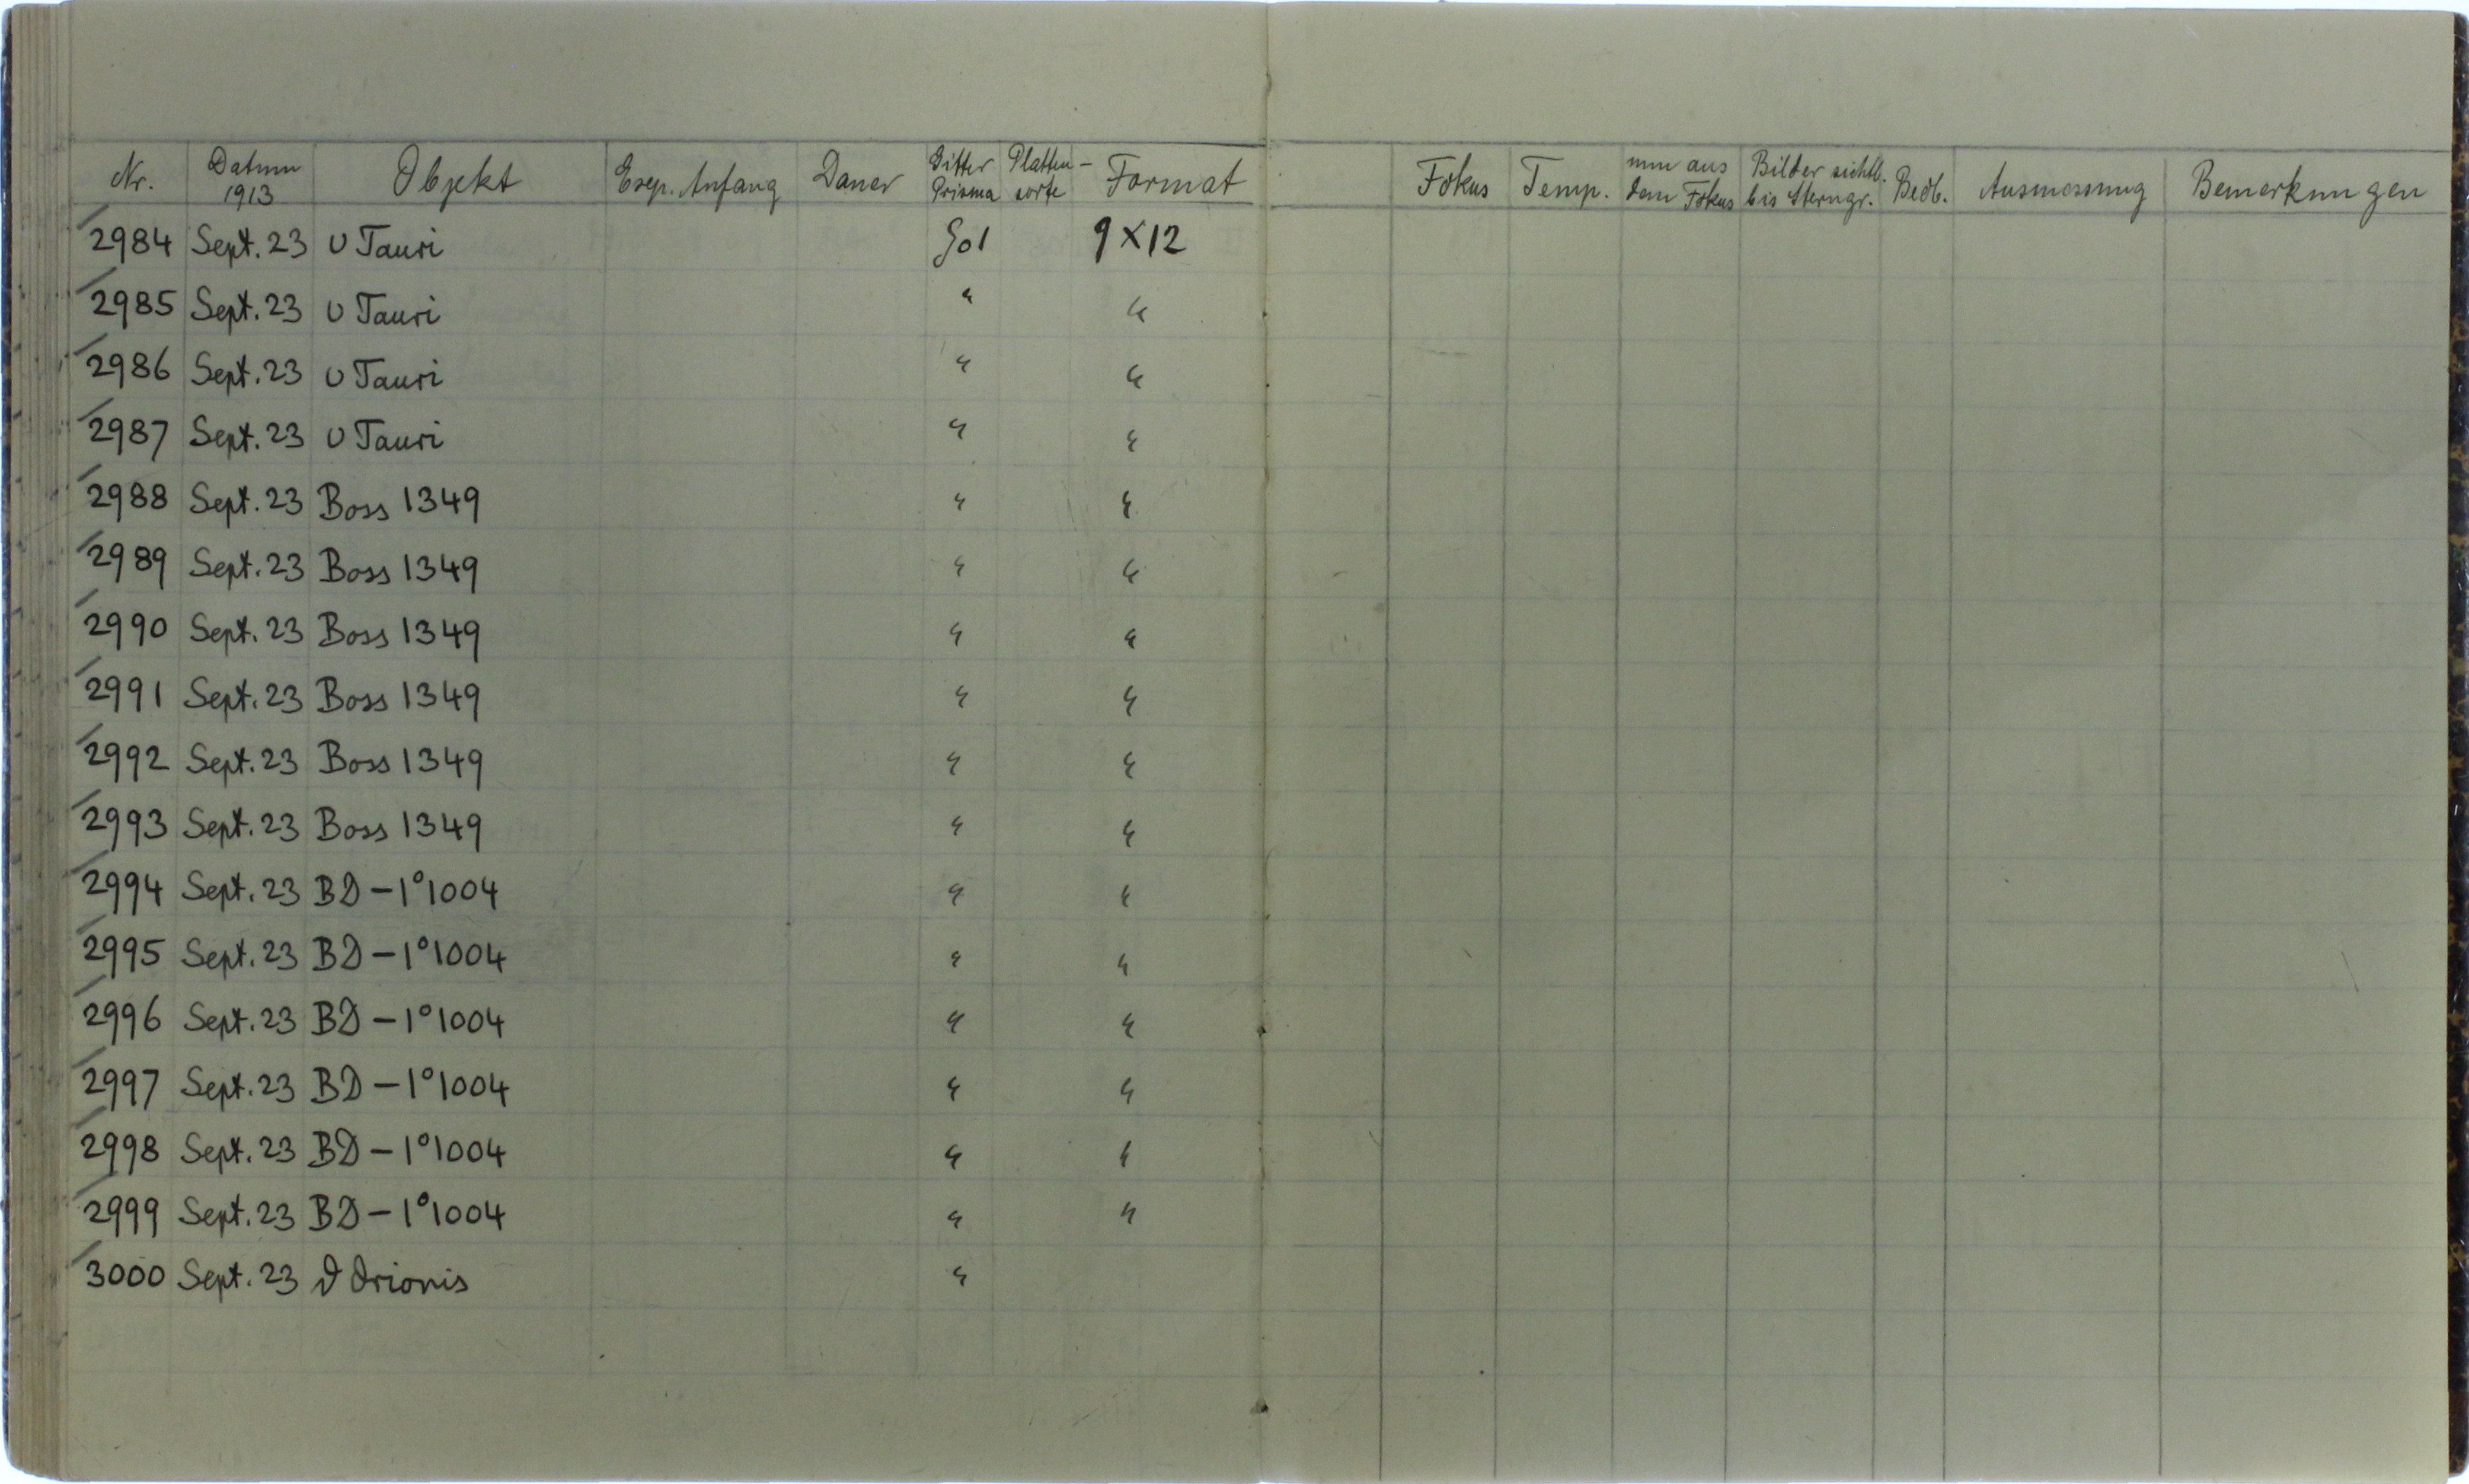 Nr. Datum 1913 Objekt Exp. Anfang Dauer Gitter Prisma Platten-sorte Format Fokus Temp. mm aus dem Fokus Bilder sichtb. bis Sterngr. Beob. Ausmessung Bemerkungen
2984 Sept. 23 υ Tauri 9×12
2985 Sept. 23 υ Tauri " "
2986 Sept. 23 υ Tauri " "
2987 Sept. 23 υ Tauri " "
2988 Sept. 23 Boss 1349 " "
2989 Sept. 23 Boss 1349 " "
2990 Sept. 23 Boss 1349 " "
2991 Sept. 23 Boss 1349 " "
2992 Sept. 23 Boss 1349 " "
2993 Sept. 23 Boss 1349 " "
2994 Sept. 23 BD −1°1004 " "
2995 Sept. 23 BD −1°1004 " "
2996 Sept. 23 BD −1°1004 " "
2997 Sept. 23 BD −1°1004 " "
2998 Sept. 23 BD −1°1004 " "
2999 Sept. 23 BD −1°1004 " "
3000 Sept. 23 ϑ Orionis "